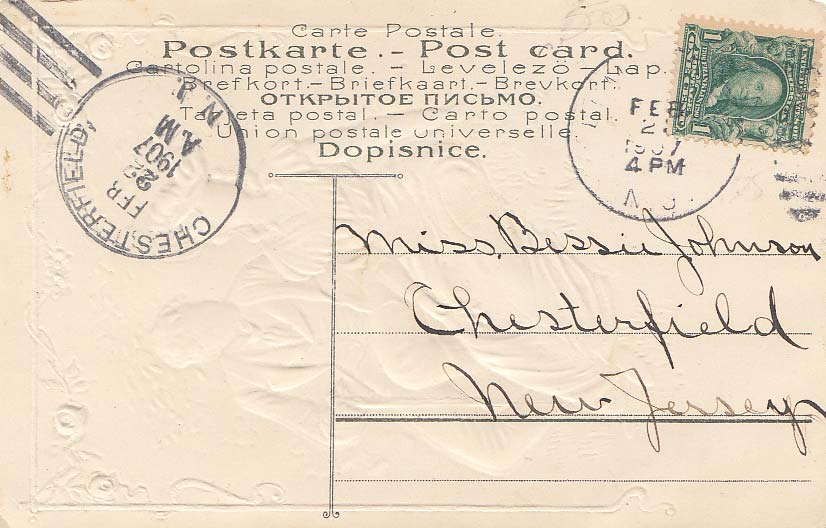 Carte Postale.
Postkarte. - Post card.
Cartolina postale. - Levelezö - Lap.
Brefkort.-Briefkaart.-Brevkort.
ОТКРЫТОЕ ПИСЬМО.
Tarjeta postal. - Carto postal.
Union postale universelle.
Dopisnice.
CHESTERFIELD,
N.J.
FEB
22
1907
A M
FEB
1907
4 PM
N. J.
1
1
Miss. Bessie Johnson
Chesterfield
New Jersey